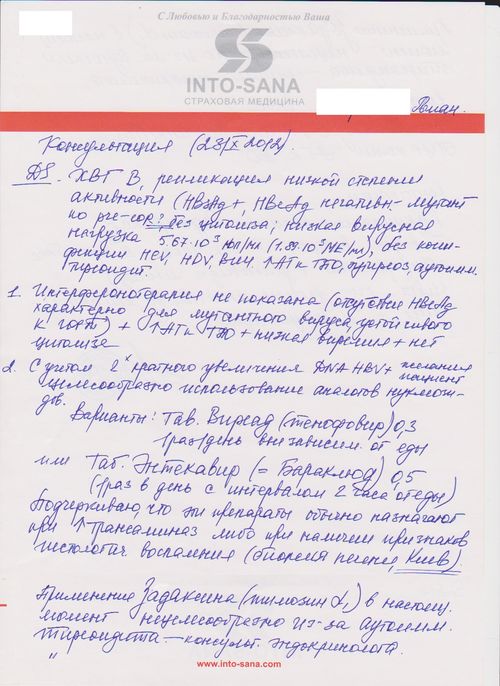 С Любовью и Благодарностью Ваша
INTO-SANA
СТРАХОВАЯ МЕДИЦИНА
Роман.
Консультация (23/X 2012).
DS. ХВГ В, репликация низкой степени
активности (HBsAg+, HBeAg негативн- мутант
по pre-cor? без цитолиза; низкая вирусная
нагрузка 5.67·10³ коп/мл (1.89·10³МЕ/мл), без коин-
фекции HCV, HDV, ВИЧ. ↑АТк ТПО, аутоимм.
тиреоидит.
1. Интерферонотерапия не показана (отсутствие HBeAg
характерно для мутантного вируса, устойчивого
к ) + ↑АТк ТПО + низкая виремия + нет
цитолиза
2. С учетом 2х кратного увеличения DNA HBV + желания
пациент
целесообразно использование аналогов нуклеози-
дов.
Варианты: Таб. Вирсад (тенофовир) 0,3
1раз/день вне зависим. от еды
или Таб. Энтекавир (= Бараклюд) 0,5
(1раз в день с интервалом 2 часа от еды)
Подчеркиваю, что эти препараты обычно назначают
при ↑ трансаминаз либо при наличии признаков
гистологич воспаления (биопсия печени, Киев).
Применение Задаксина (тимозин α₁) в настоящ.
момент нецелесообразно из-за аутоимм.
тиреоидита — консульт. эндокринолога.
www.into-sana.com